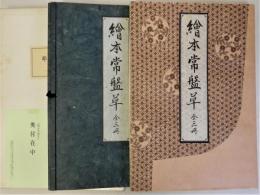 繪本常盤草 全三冊
繪本常盤草 全三冊
奥付在中